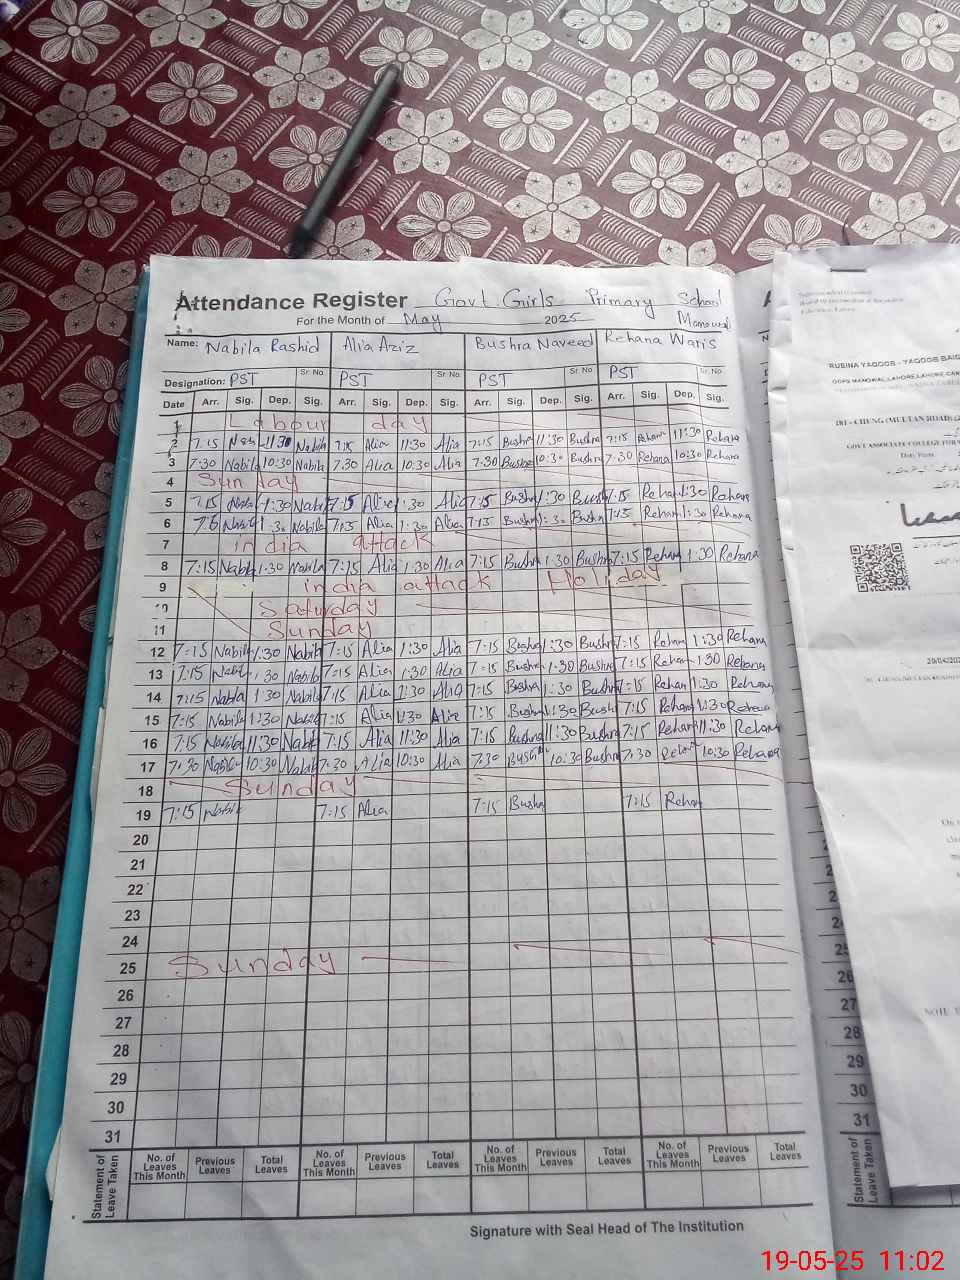 Attendance Register Govt. Girls Primary School
For the Month of May 2025 Manowal
Name: Nabila Rashid Alia Aziz Bushra Naveed Rehana Waris
Designation: PST Sr. No. PST Sr. No. PST Sr. No. PST Sr. No.
Date Arr. Sig. Dep. Sig. Arr. Sig. Dep. Sig. Arr. Sig. Dep. Sig. Arr. Sig. Dep. Sig.
1 Labour day
2 7:15 11:30 Nabila 7:15 Alia 11:30 Alia 7:15 Bushra 11:30 Bushra 7:15 Rehana 11:30 Rehana
3 7:30 Nabila 10:30 Nabila 7:30 Alia 10:30 Alia 7:30 Bushra 10:30 Bushra 7:30 Rehana 10:30 Rehana
4 Sunday
5 7:15 Nabila 1:30 Nabila 7:15 Alia 1:30 Alia 7:15 Bushra 1:30 Bushra 7:15 Rehana 1:30 Rehana
6 Nabila 1:30 Nabila 7:15 Alia 1:30 Alia 7:15 Bushra 1:30 Bushra 7:15 Rehana 1:30 Rehana
7 india attack
8 7:15 Nabila 1:30 Nabila 7:15 Alia 1:30 Alia 7:15 Bushra 1:30 Bushra 7:15 Rehana 1:30 Rehana
9 india attack Holiday
10 Saturday
11 Sunday
12 7:15 Nabila 1:30 Nabila 7:15 Alia 1:30 Alia 7:15 Bushra 1:30 Bushra 7:15 Rehana 1:30 Rehana
13 7:15 Nabila 1:30 Nabila 7:15 Alia 1:30 Alia 7:15 Bushra 1:30 Bushra 7:15 Rehana 1:30 Rehana
14 7:15 Nabila 1:30 Nabila 7:15 Alia 1:30 Alia 7:15 Bushra 1:30 Bushra 7:15 Rehana 1:30 Rehana
15 7:15 Nabila 1:30 Nabila 7:15 Alia 1:30 Alia 7:15 Bushra 1:30 Bushra 7:15 Rehana 1:30 Rehana
16 7:15 Nabila 11:30 Nabila 7:15 Alia 11:30 Alia 7:15 Bushra 11:30 Bushra 7:15 Rehana 11:30 Rehana
17 7:30 Nabila 10:30 Nabila 7:30 Alia 10:30 Alia 7:30 Bushra 10:30 Bushra 7:30 Rehana 10:30 Rehana
18 Sunday
19 7:15 Nabila 7:15 Alia 7:15 Bushra 7:15 Rehana
20
21
22
23
24
25 Sunday
26
27
28
29
30
31
Statement of Leave Taken
No. of Leaves This Month Previous Leaves Total Leaves No. of Leaves This Month Previous Leaves Total Leaves No. of Leaves This Month Previous Leaves Total Leaves No. of Leaves This Month Previous Leaves Total Leaves
Signature with Seal Head of The Institution
25
26
27
28
29
30
31
Statement of Leave Taken
19-05-25 11:02